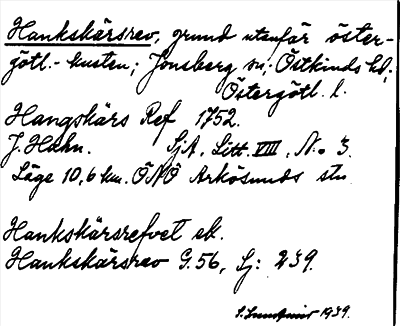 Hankskärsrev, grund utanför öster-
götl.-kusten; Jonsberg sn; Östkinds hd;
Östergötl. l.
Hangskärs Ref 1752.
J. Hahn. SjA, Litt. VIII, N.o 3.
Läge 10,6 km. ÖNÖ Arkösunds stn
Hankskärsrefvet ek.
Hankskärsrev G. 56, Sj: 239.
1939.